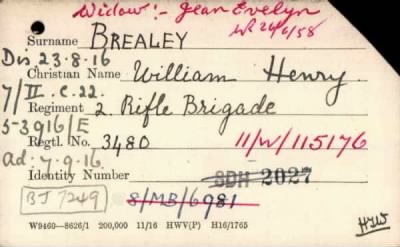 Widow:- Jean Evelyn
WR 26/6/58
Surname BREALEY
Dis 23.8.16
Christian Name William Henry
7/II.C.22.
Regiment 2. Rifle Brigade
5-3916/E
Regtl. No. 3480 11/W/115176
Ad: 7-9.16
Identity Number SDH 2027
BJ 7249 8/MB/6981
W9460—8626/1 200,000 11/16 HWV(P) H16/1765